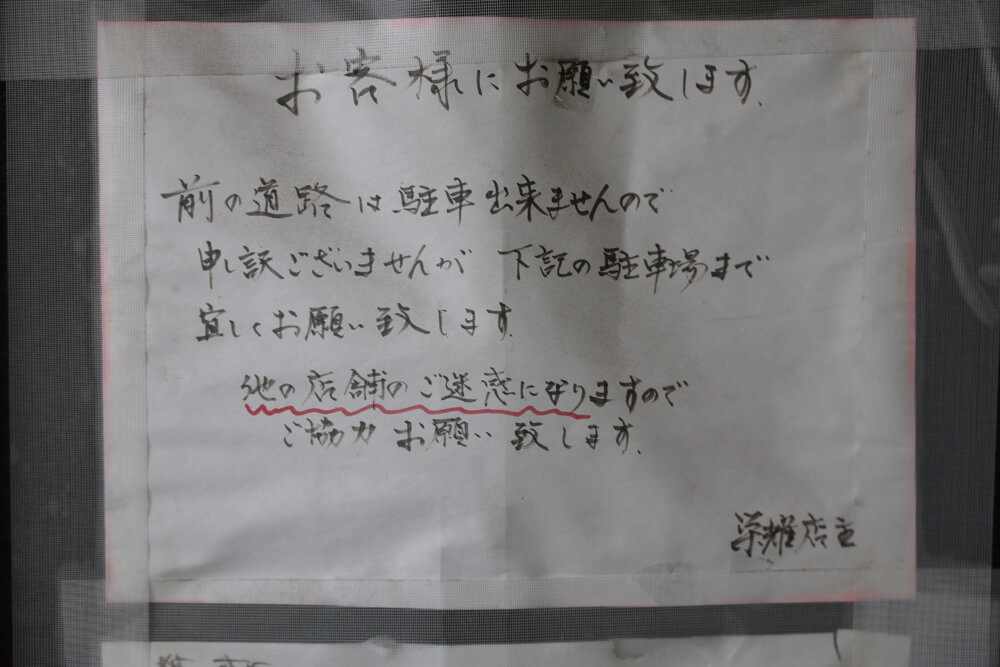 お客様にお願い致します.
前の道路は駐車出来ませんので
申し訳ございませんが 下記の駐車場まで
宜しくお願い致します.
他の店舗のご迷惑になりますので
ご協力 お願い致します.
栄耀店主